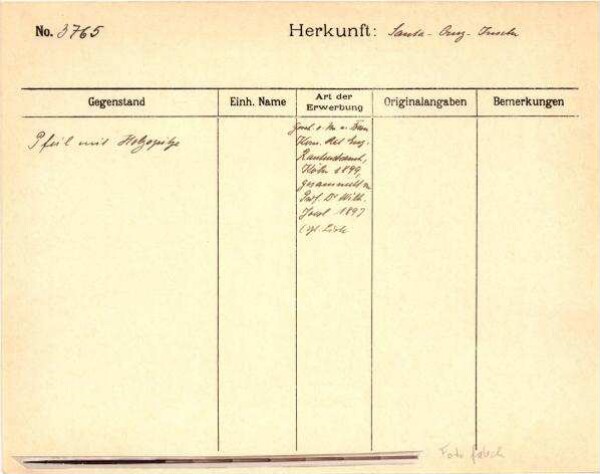 No. 3765
Herkunft: Santa-Cruz-Inseln
Gegenstand
Einh. Name
Art der Erwerbung
Originalangaben
Bemerkungen
Pfeil mit Holzspitze
Gesch. v. Hn. u. Frau
Kom. Rat Eug.
Rautenstrauch,
Köln 1899,
gesammelt v.
Prof. Dr Wilh.
Joest 1897
Foto falsch